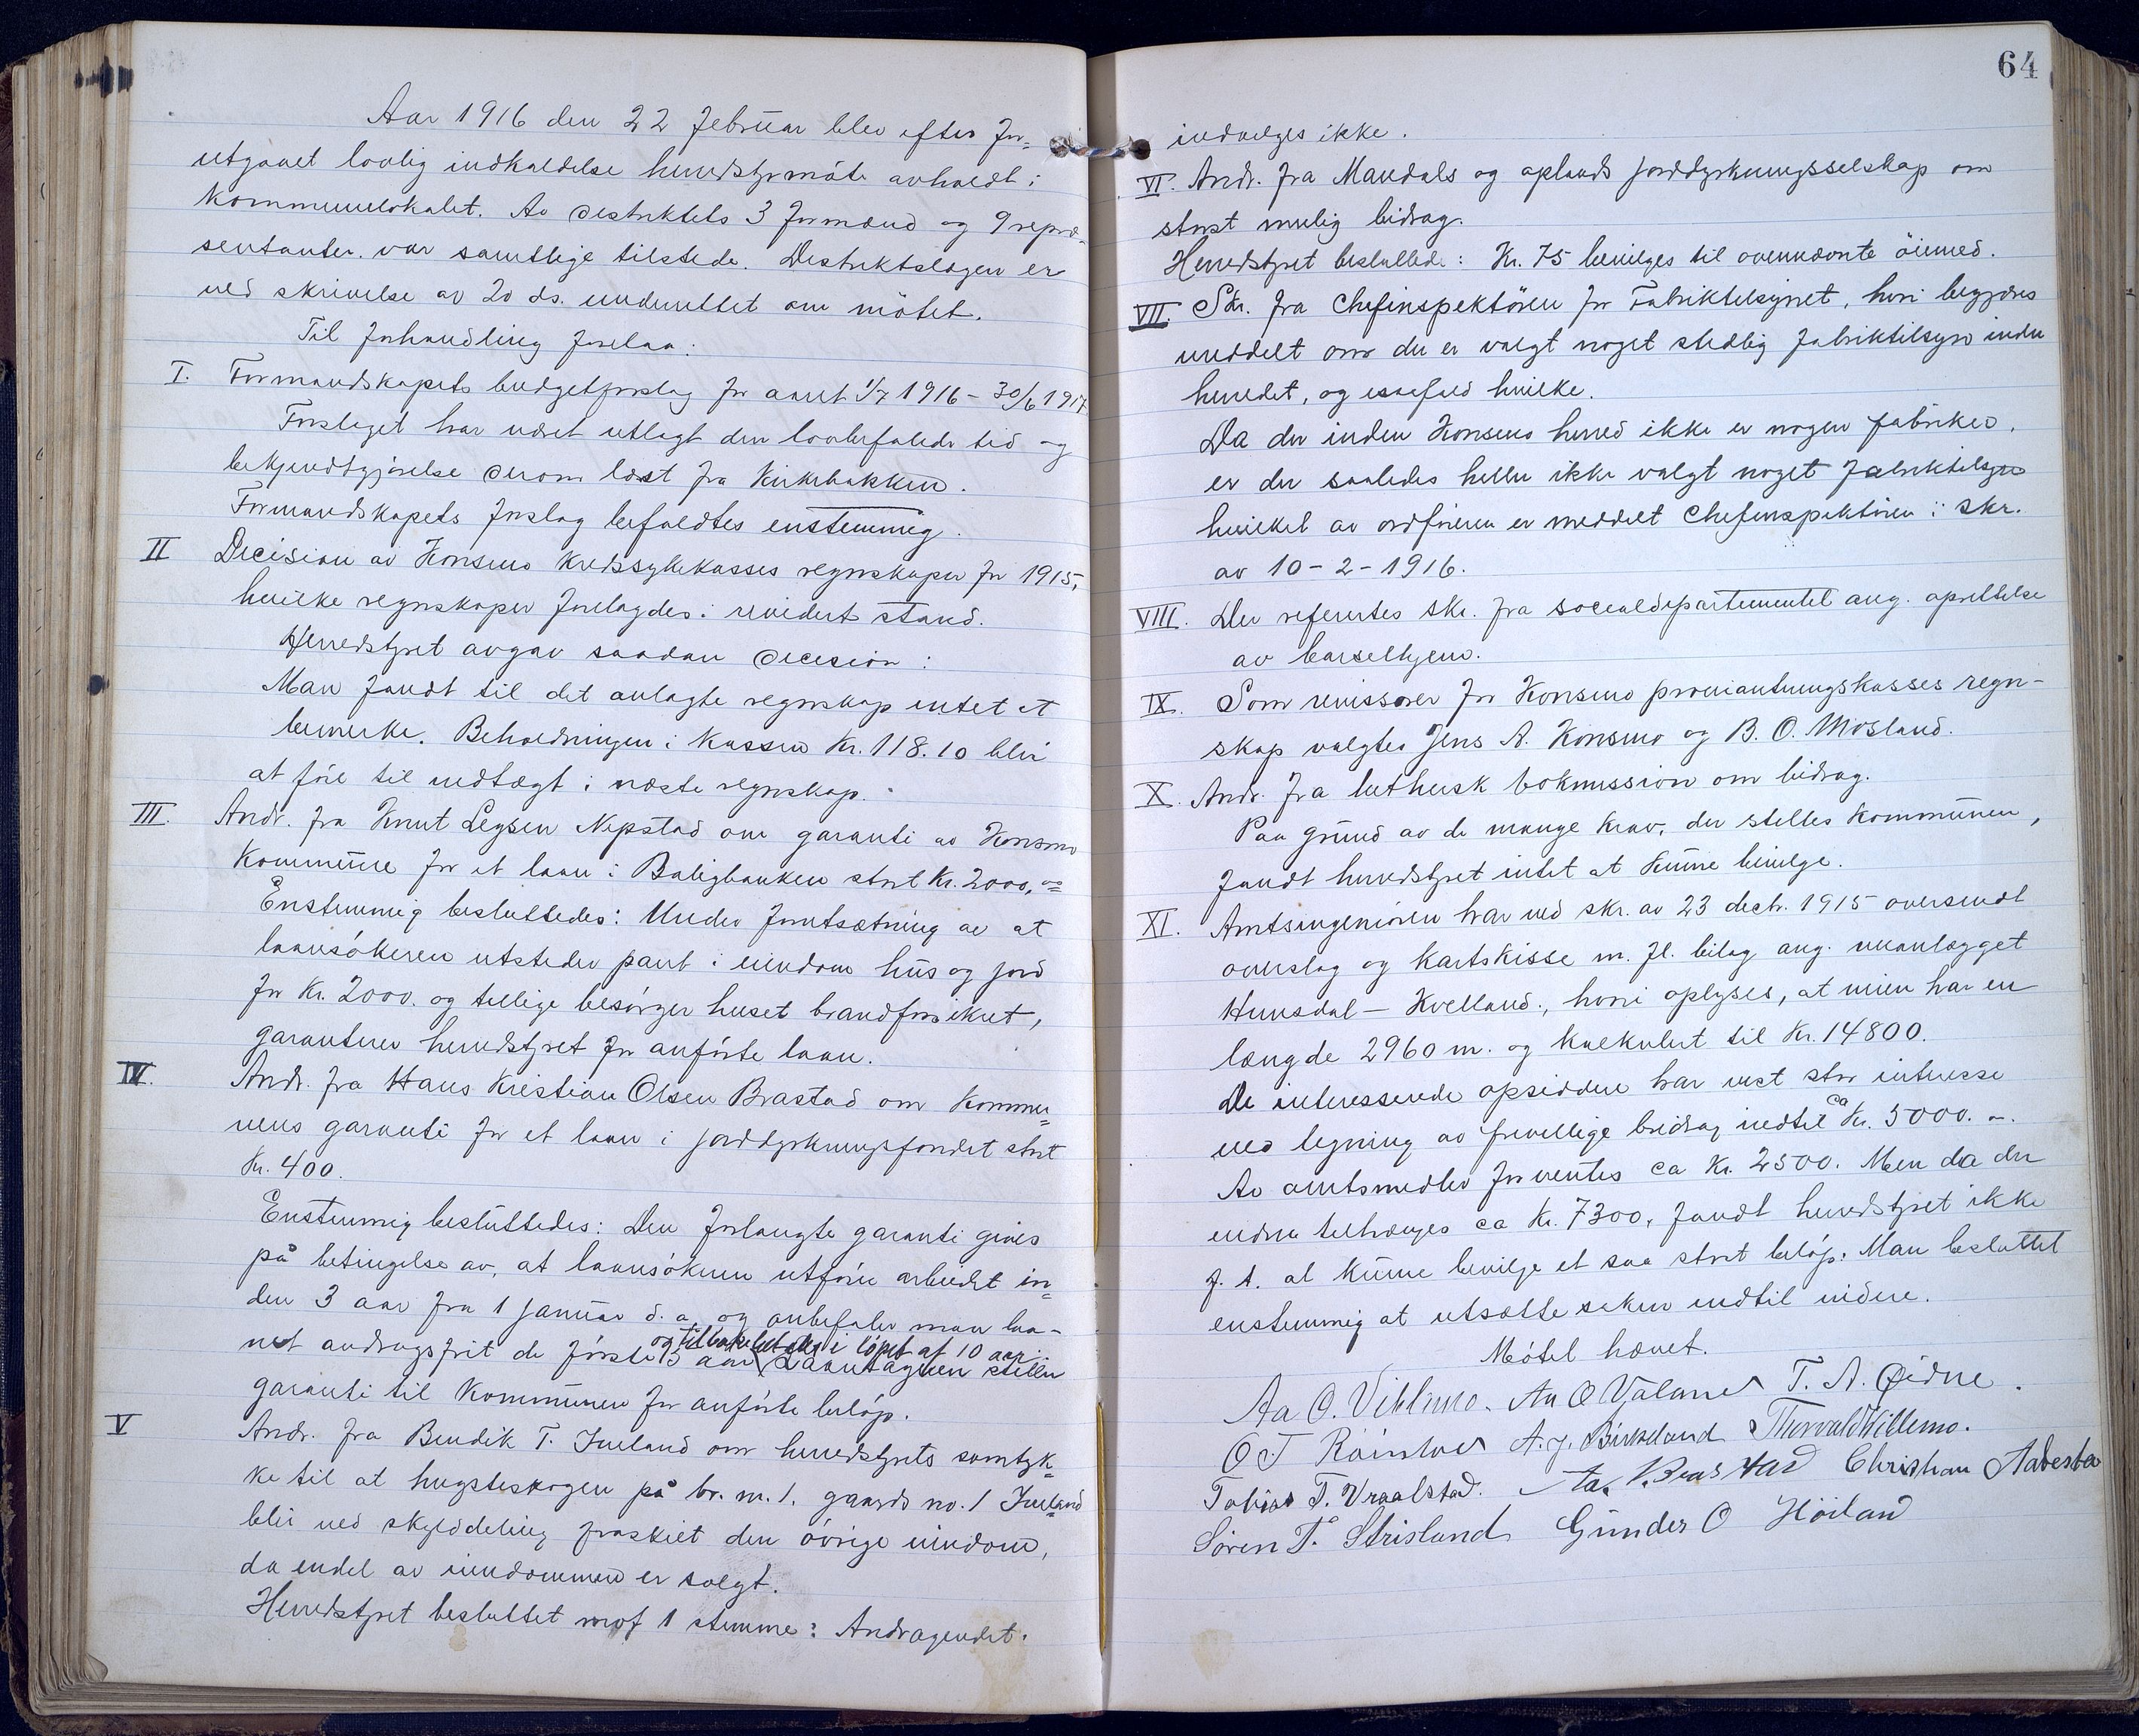 Aar 1916 den 22 februar blev efter for-
utgaaet lovlig indkaldelse herredstyrmøte avholdt i
kommunelokalet. Av distriktets 3 formænd og 9 repræ-
sentanter var samtlige tilstede. Distriktslægen er
ved skrivelse av 20 ds. underrettet om møtet.
Til forhandling forelaa:
I. Formandskapets budgetforslag for aaret 1/7 1916 - 30/6 1917
Forslaget har været utlagt den lovbefalede tid og
bekjendtgjørelse derom læst fra Kirkebakken.
Formandskapets forslag befaldtes enstemmig.
II Decision av Konsmo Kredssykekasses regnskaper for 1915,
hvilke regnskaper forelagdes i revidert stand.
Herredstyret avgav saadan decision:
Man fandt til det anlagte regnskap intet at
bemerke. Beholdningen i Kassen Kr. 118.10 blir
at føre til indtægt i næste regnskap.
III. Andr. fra Knut Legsen Nepstad om garanti av Konsmo
Kommune for et laan i Boligbanken stort Kr. 2000,00
Enstemmig besluttedes: Under forutsætning av at
laansøkeren utsteder pant i eiendom hus og jord
for Kr. 2000. og tillige besørger huset brandforsikret,
garanterer herredstyret for anførte laan.
IV. Andr. fra Hans Kristian Olsen Brastad om Kommu-
nens garanti for et laan i jorddyrkningsfondet stort
Kr. 400.
Enstemmig besluttedes: Den forlangte garanti gives
på betingelse av, at laansøkeren utfører arbeidet in-
den 3 aar fra 1 januar d. a. og anbefaler man laa-
og tilbakebetales i løpet af 10 aar.
net avdragsfrit de første 5 aar Laantageren stiller
garanti til Kommunen for anførte beløp.
V Andr. fra Bendik T. Jueland om herredstyrets samtyk-
ke til at hugsteskogen på br. nr. 1. gaards no. 1 Jueland
blir ved skylddeling fraskilt den øvrige eiendom,
da endel av eiendommen er solgt.
Herredstyret besluttet mot 1 stemme: Andragendet
64
indvilges ikke.
VI. Andr. fra Mandals og oplands jorddyrkningsselskap om
størst mulig bidrag.
Herredstyret besluttede: Kr. 75 bevilges til ovennævnte øiemed.
VII. Skr. fra Chefinspektøren for Fabriktilsynet, hvori begjæres
meddelt om der er valgt noget stedlig fabriktilsyn inden
herredet, og isaafald hvilke.
Da der inden Konsmo herred ikke er nogen fabriker,
er der saaledes heller ikke valgt noget fabriktilsyn
hvilket av ordføreren er meddelt Chefinspektøren i skr.
av 10-2-1916.
VIII. Der refereertes skr. fra socialdepartementet ang. oprettelse
av barselhjem.
IX. Som revisorer for Konsmo provianteringskasses regn-
skap valgtes Jens A. Konsmo og B. O. Mosland.
X. Andr. fra luthersk bokmission om bidrag.
Paa grund av de mange krav, der stilles Kommunen,
fandt herredstyret intet at kunne bevilge.
XI. Amtsingeniøren har ved skr. av 23 decbr. 1915 oversendt
overslag og kartskisse m. fl. bilag ang. veianlægget
Hunsdal - Kvelland, hvori oplyses, at veien har en
længde 2960 m. og kalkulert til Kr. 14800.
De interesserede opsiddere har vist stor interesse
ved tegning av frivillige bidrag indtil ca Kr. 5000.-.
Av amtsmidler forventes ca Kr. 2500. Men da der
endnu tiltrænges ca Kr. 7300, fandt herredstyret ikke
f. t. at kunne bevilge et saa stort beløp. Man besluttet
enstemmig at utsætte saken indtil videre.
Møtet hævet.
Aa O. Viblemo. Aa O Valand T. A. Øidne.
O T Røinstad A. J. Birkeland Thorvald Viblemo.
Tobias T. Vraalstad. Aa. Brastad Christian Aabestad
Søren T. Strisland Gunder O Höiland